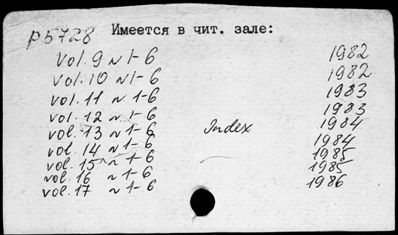 р5728 Имеется в чит. зале:
vol. 9 N 1-6 1982
vol. 10 N 1-6 1982
vol. 11 N 1-6 1983
vol. 12 N 1-6 1983
vol. 13 N 1-6 Index 1984
vol. 14 N 1-6 1984
vol. 15 N 1-6 — 1985
vol. 16 N 1-6 1985
vol. 17 N 1-6 1986